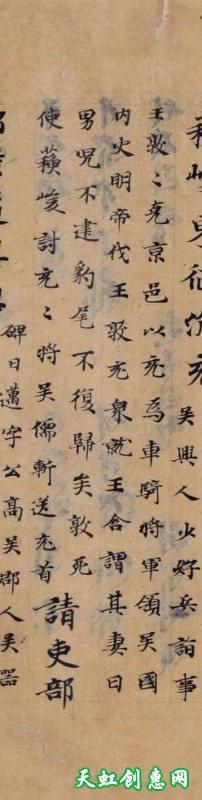 蘇峻東征沈充 吳興人少好兵諂事
王敦〻克京邑以充為車騎將軍領吳國
内史明帝伐王敦充衆就王含謂其妻曰
男兒不建豹尾不復歸矣敦死
使蘇峻討充〻將吳儒斬送充首 請吏部
碑曰邁字公高吳郡人吳器
天虹创惠网